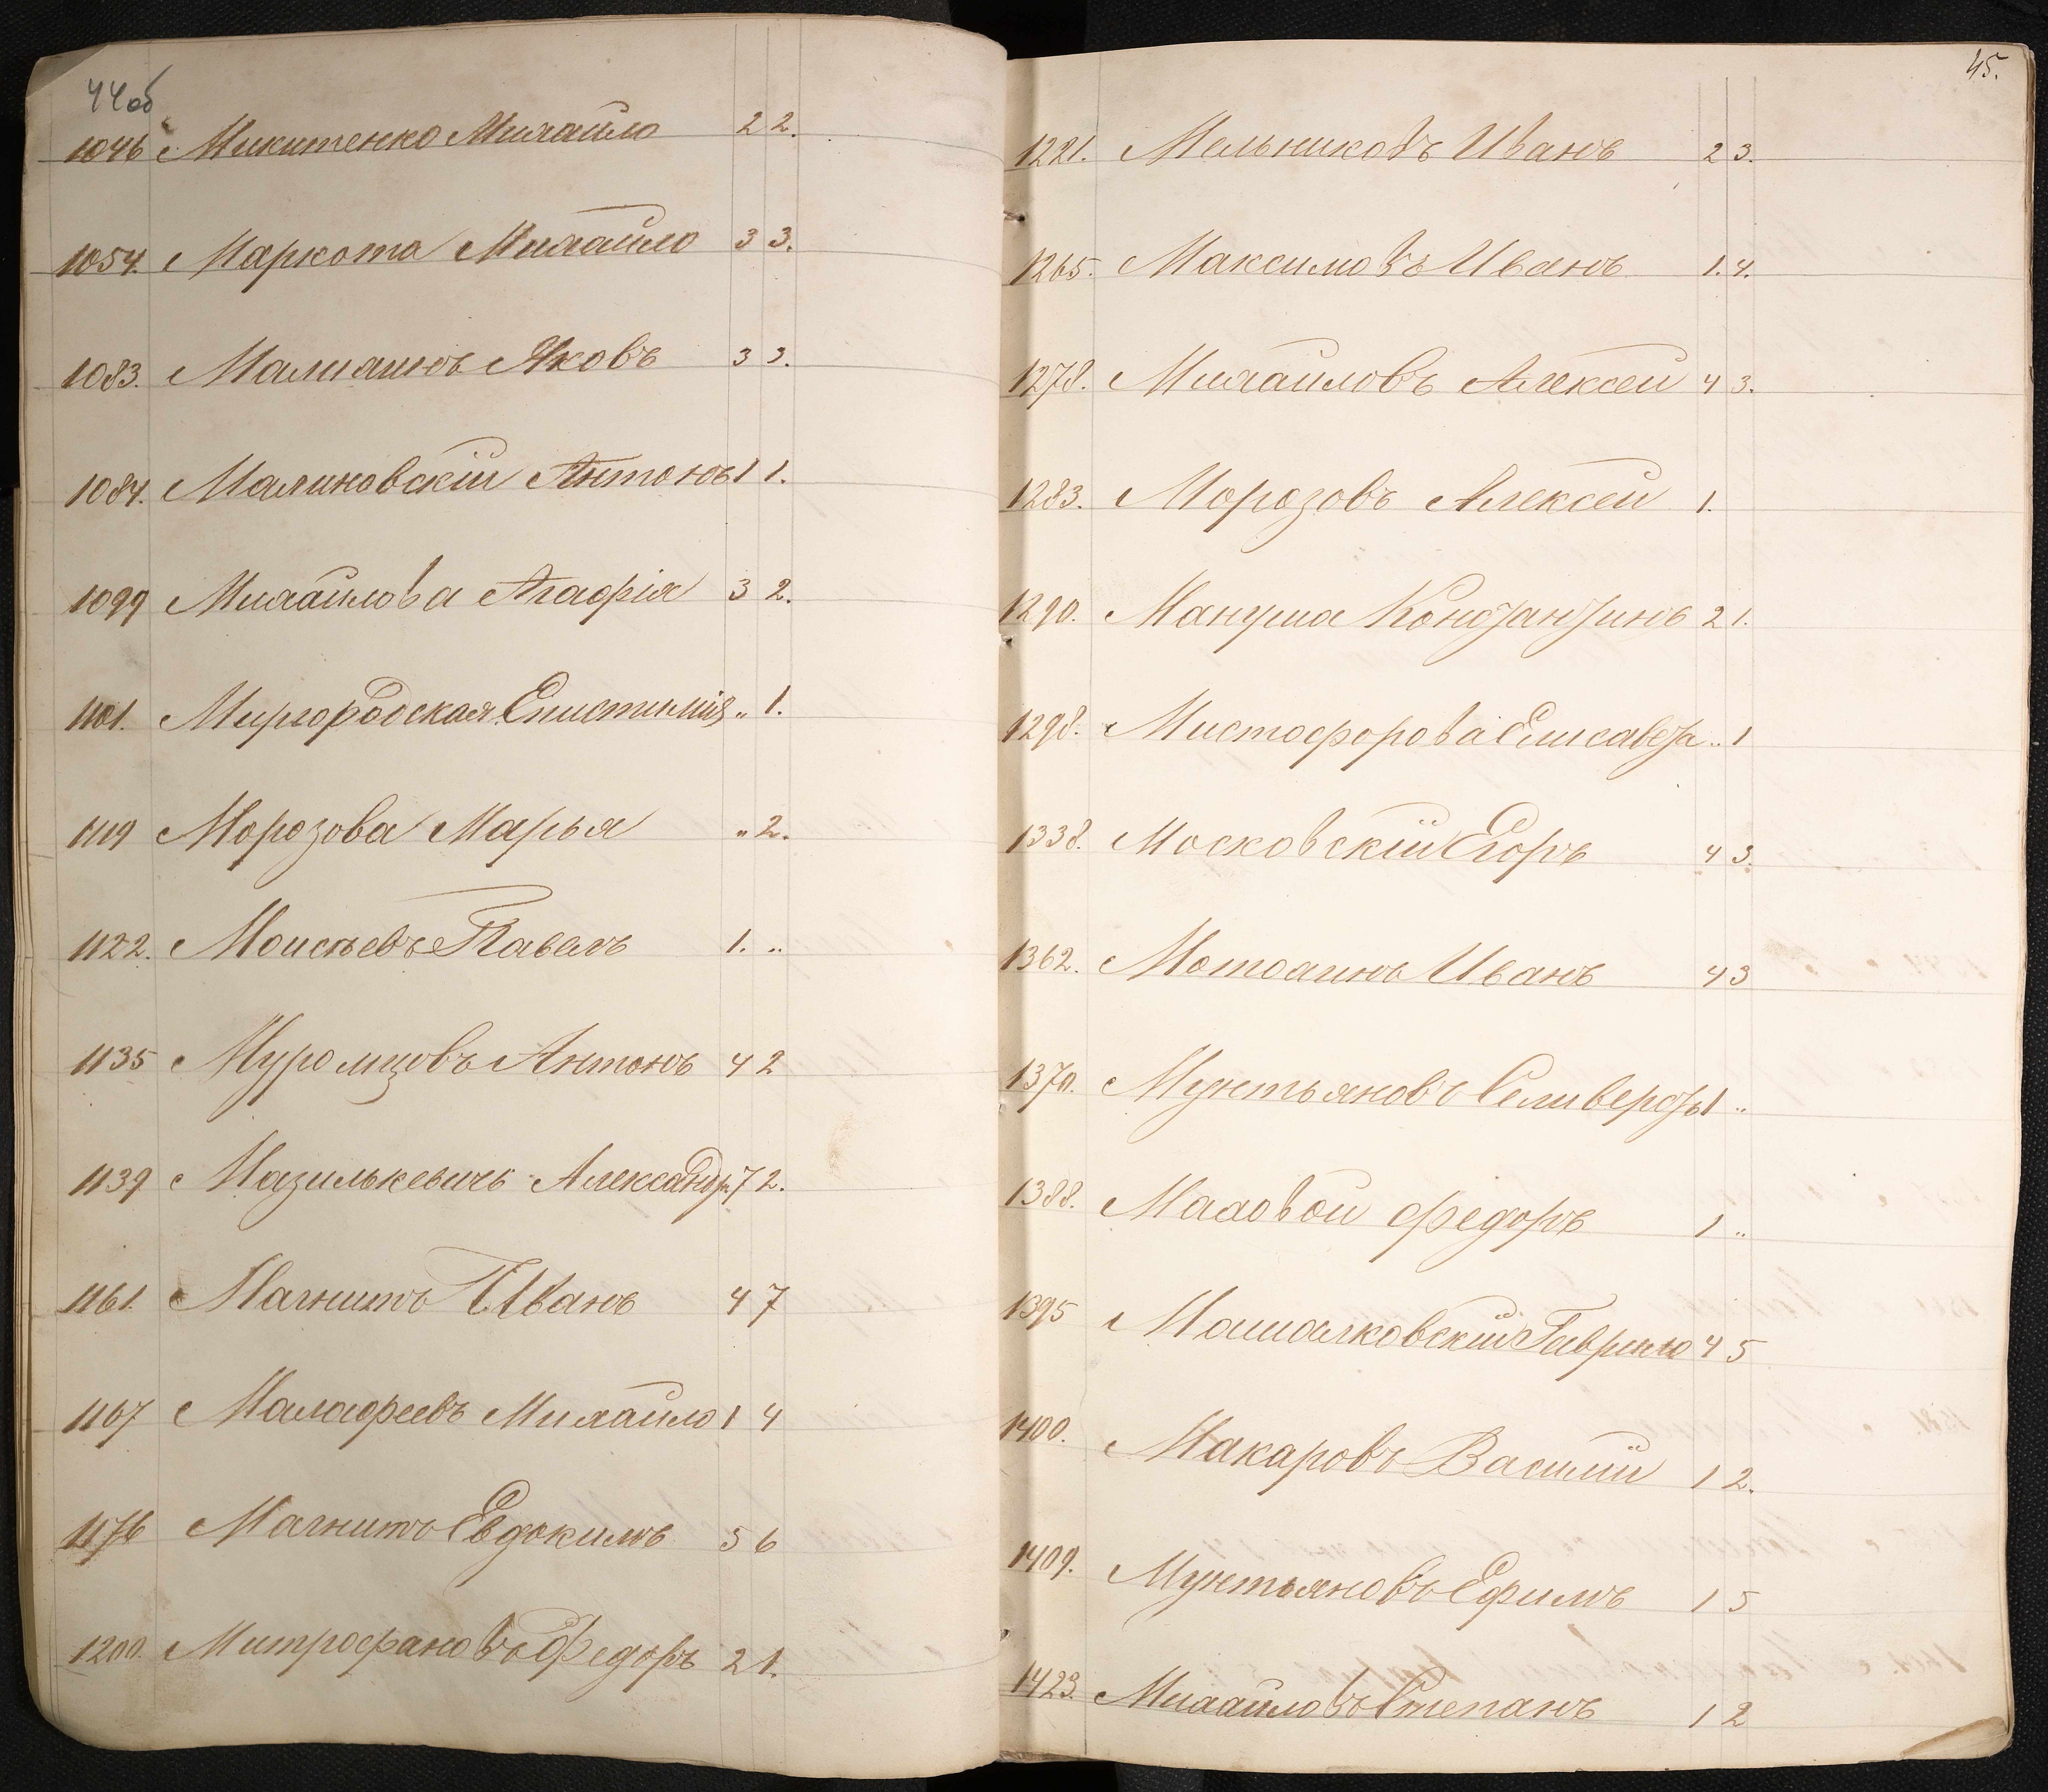 44об
1046 Микитенко Михайло 2 2.
1054. Маркота Михайло 3 3.
1083. Яковъ 3 3.
1084. Малиновскій Антонъ 1 1.
1099 Михайлова Агафія 3 2.
1101. Миргородская Епистимія „ 1.
1119 Морозова Марья „ 2.
1122. Моисѣевъ Павелъ 1. „
1135 Муромцовъ Антонъ 4 2
1139 Мазилькевичъ Александр. 7 2.
1161. Магнитъ Иванъ 4 7
1167 Малафеевъ Михайло 1 4
1176 Магнитъ Евдокимъ 5 6
1200. Митрофановъ Федоръ 2 1.
45.
1221. Мельниковъ Иванъ 2 3.
1265. Максимовъ Иванъ 1. 4.
1278. Михайловъ Алексей 4 3.
1283. Морозовъ Алексей 1.
1290. Мануша Константинъ 2 1.
1298. Мистофорова Елисавета „ 1
1338. Московскій Егоръ 4 3.
1362. Иванъ 4 3
1370. Мунтьяновъ Селиверстъ 1 „
1388. Маховой Федоръ 1 „
1395 Машалковскій Гаврило 4 5
1400. Макаровъ Василій 1 2.
1409. Мунтьяновъ Ефимъ 1 5
1423. Михайловъ Степанъ 1 2